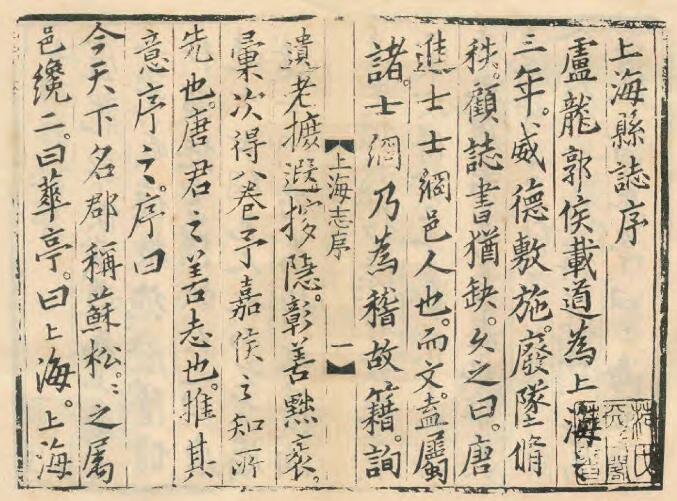 上海縣誌序
盧龍郭侯載道為上海
三年。威德敷施。廢墜脩
秩。顧誌書猶缺。久之曰。唐
進士士綱邑人也。而文。盍屬
諸。士綱乃為稽故籍。詢
上海志序
一
遺老。摭遐搜隱。彰善黜衺。
彙次得八卷予嘉侯之知所
先也。唐君之善志也。推其
意序之。序曰
今天下名郡稱蘇松。〻之属
邑纔二。曰華亭。曰上海。上海